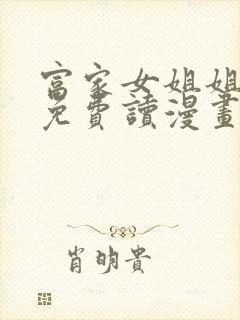 富家女姐姐
免費讀漫畫
肖明貴